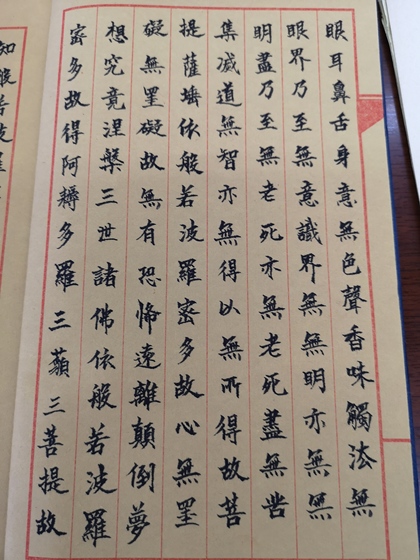 眼耳鼻舌身意無色聲香味觸法無
眼界乃至無意識界無無明亦無無
明盡乃至無老死亦無老死盡無苦
集滅道無智亦無得以無所得故菩
提薩埵依般若波羅密多故心無罣
礙無罣礙故無有恐怖遠離顛倒夢
想究竟涅槃三世諸佛依般若波羅
密多故得阿耨多羅三藐三菩提故
知般若波羅